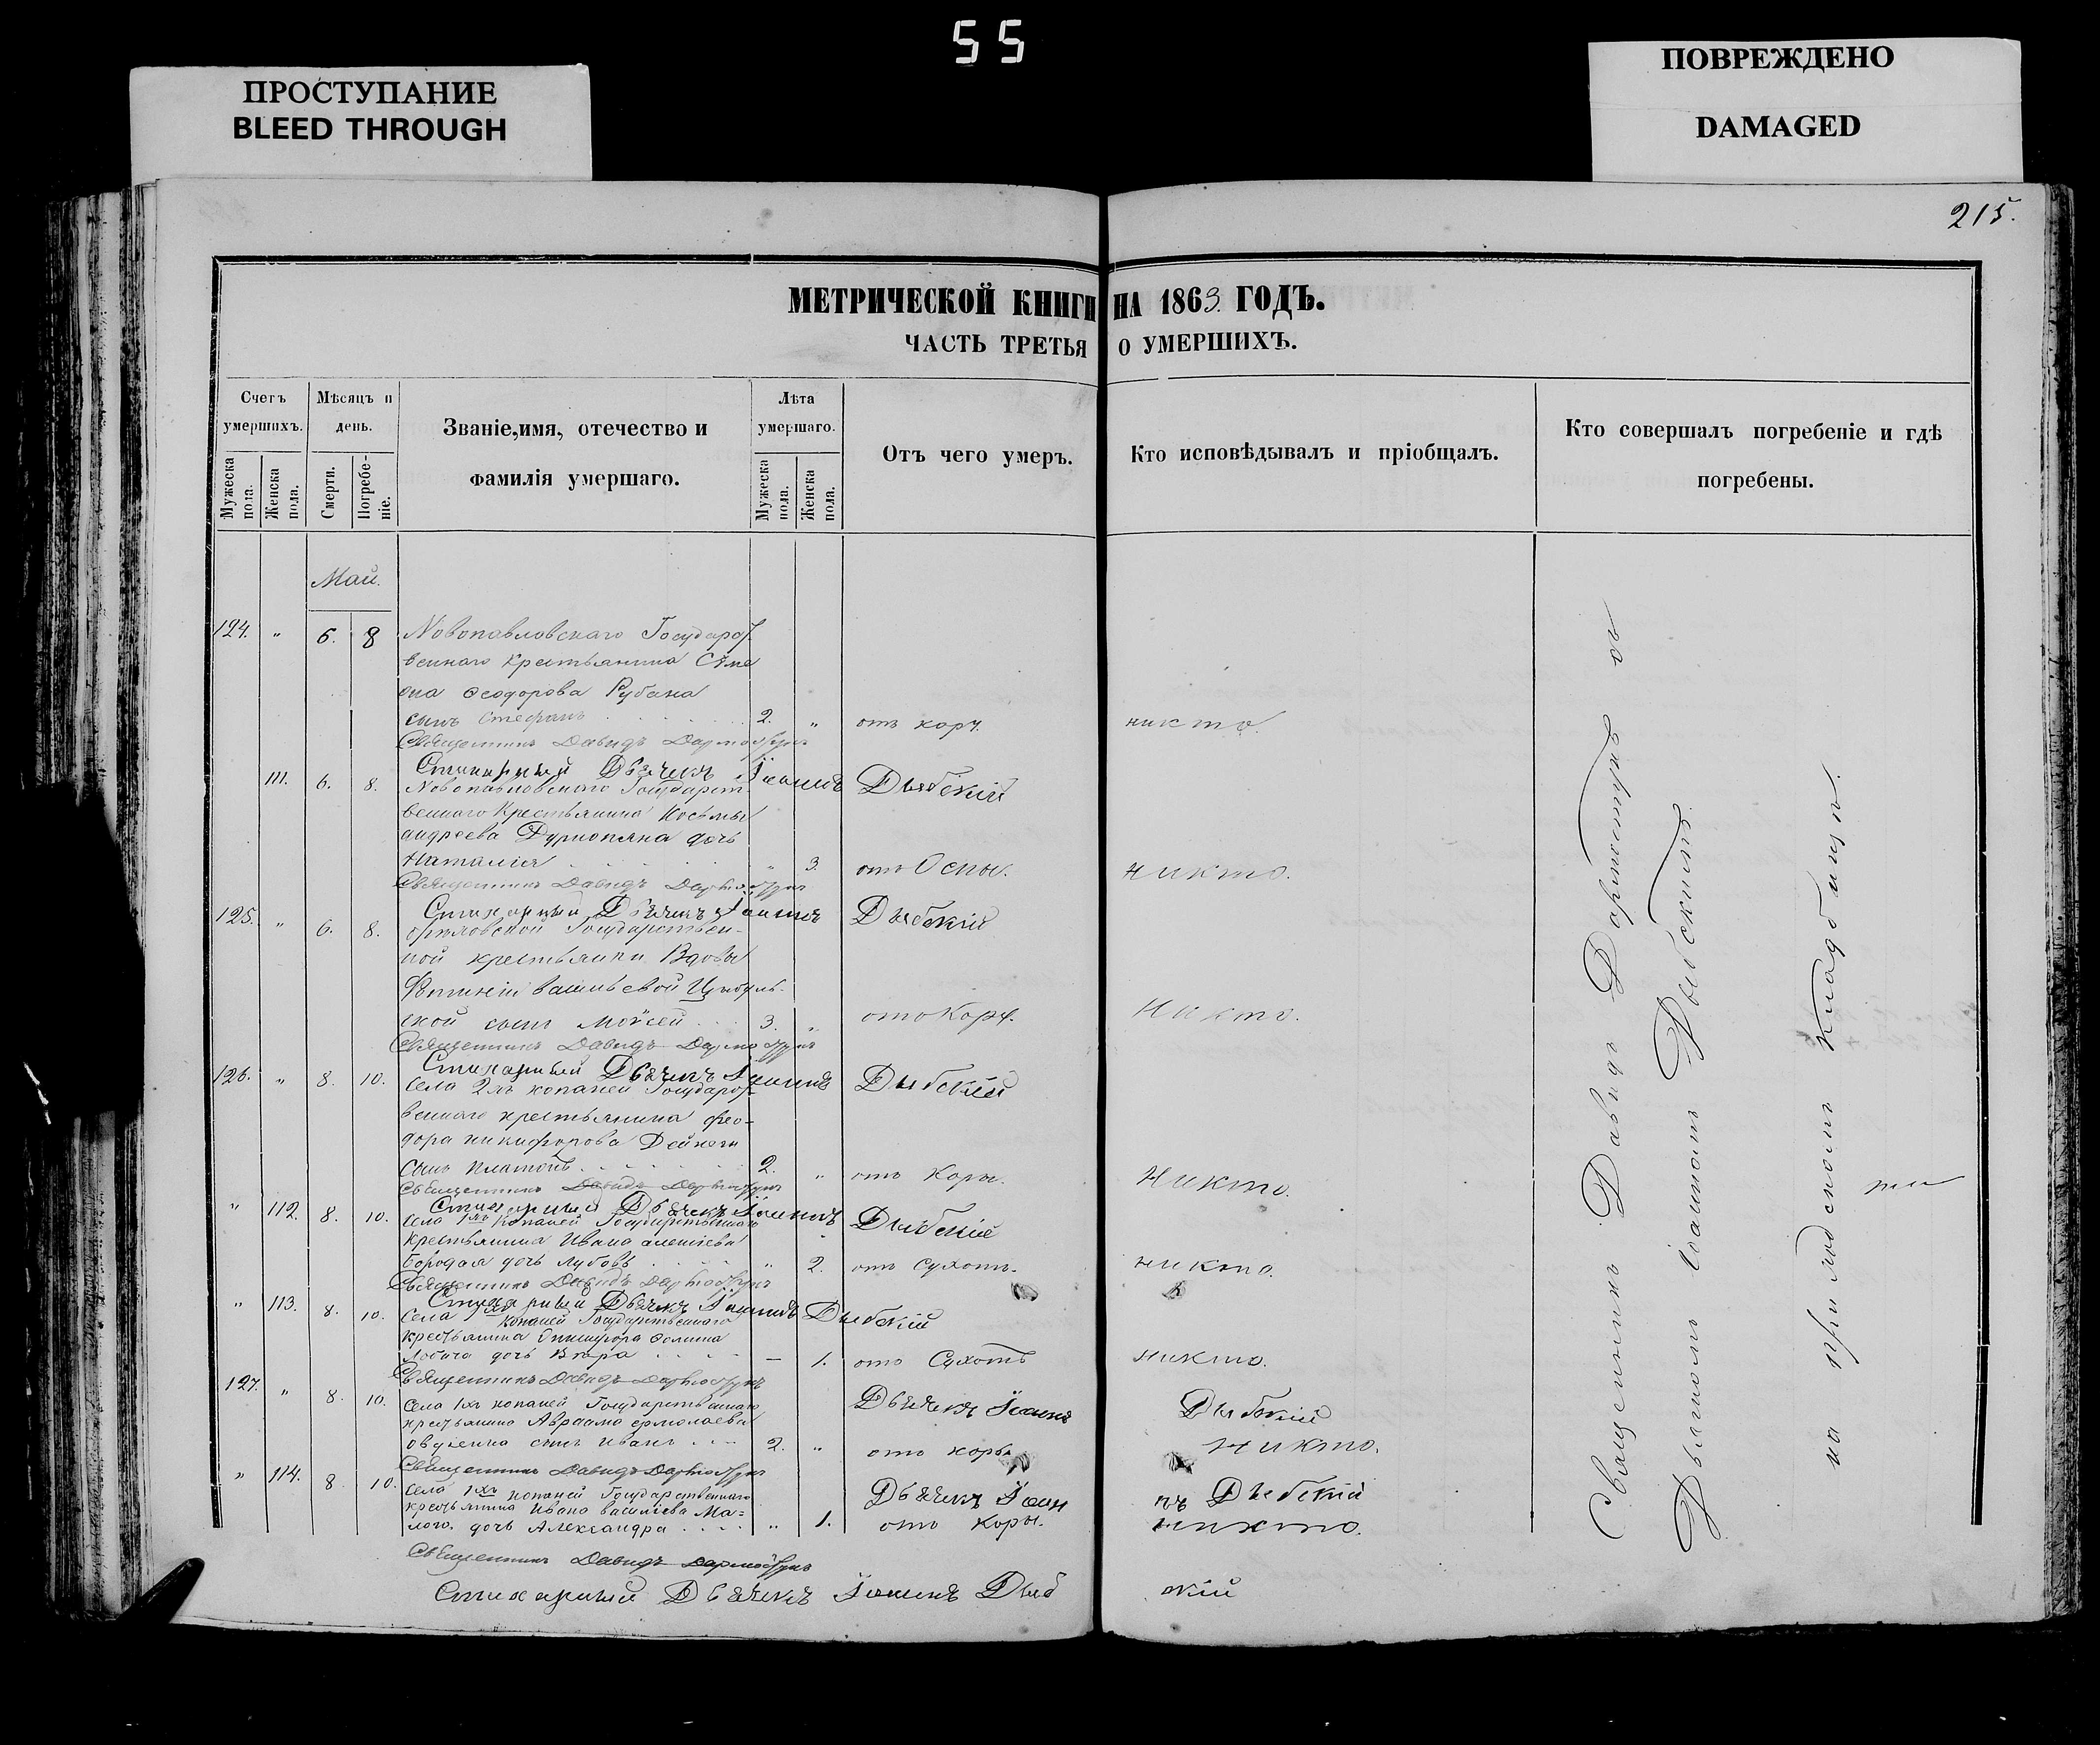 55
ПРОСТУПАНИЕ
BLEED THROUGH
ПОВРЕЖДЕНО
DAMAGED
215.
МЕТРИЧЕСКОЙ КНИГИ НА 1863. ГОДЪ.
ЧАСТЬ ТРЕТЬЯ О УМЕРШИХЪ.
Счетъ умершихъ.
Мужеска пола.
Женска пола.
Мѣсяцъ и день.
Смерти.
Погребеніе.
Званіе, имя, отечество и
фамилія умершаго.
Лѣта умершаго.
Мужеска пола.
Женска пола.
Отъ чего умеръ.
Кто исповѣдывалъ и пріобщалъ.
Кто совершалъ погребеніе и гдѣ
погребены.
Май.
124. " 6. 8 Новопавловскаго Государст
веннаго крестьянина Симе
она Ѳеодорова Рубана
сынъ Стефанъ 2. " отъ кору. никто.
Священникъ Давидъ
Стихарный Дьячекъ Іоаннъ Дыбскій
111. 6. 8. Новопавловскаго Государст
веннаго Крестьянина Косьмы
андреева Дурнопяна дочь
Наталія " 3. отъ Оспы. никто.
Священникъ Давидъ
Стихарный Дьячекъ Іоаннъ Дыбскій
125. " 6. 8. Государствен-
ной крестьянки Вдовы
васильевой Цыбуль-
ской сынъ Моѵсей 3. " отъ Кору. Никто.
Священникъ Давидъ
Стихарный Дьячекъ Іоаннъ Дыбскій
126. " 8. 10. Села 2хъ копаней Государст
веннаго крестьянина Фео-
дора никифорова Дейнеги
сынъ Платонъ 2. " отъ Коры. Никто.
Священникъ Давидъ
Стихарный Дьячекъ Іоаннъ Дыбскій
" 112. 8. 10. Села 1хъ Копаней Государственнаго
крестьянина Ивана алексіева
Бородая дочь Любовь " 2. отъ Сухотъ. никто.
Священникъ Давидъ
Стихарный Дьячекъ Іоаннъ Дыбскій
" 113. 8. 10. Села 1хъ копаней Государственнаго
крестьянина Ѳомина
дочь Вѣра — 1. отъ Сухотъ никто.
Священникъ Давидъ
Дьячекъ Іоаннъ Дыбскій
127. " 8. 10. Села 1хъ копаней Государственнаго
крестьянина Авраама ермолаева
сынъ Иванъ 2. " отъ коры никто.
Священникъ Давидъ
Дьячекъ Іоаннъ Дыбскій
" 114. 8 10. Села 1хъ копаней Государственнаго
крестьянина Ивана васильева Ма=
лого. дочь Александра " 1. отъ Коры. никто.
Священникъ Давидъ
Стихарный Дьячекъ Іоаннъ Дыбскій
Священникъ Давидъ съ
Дьячкомъ Іоанномъ Дыбскимъ.
на приходскомъ кладбищѣ.